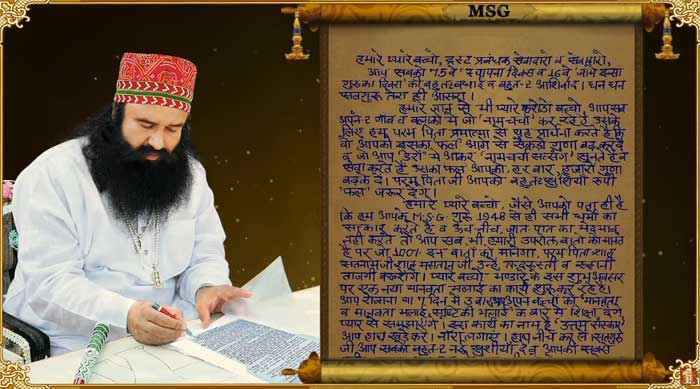 MSG
हमारे प्यारे बच्चो, ट्रस्ट प्रबंधक सेवादारो व सेवादारो,
आप सबको '75 वें' स्थापना दिवस व 16वें 'जामे इन्सा
गुरु का' दिवस की बहुत-2 बधाई व बहुत-2 आशिर्वाद। धन धन
सतगुरु तेरा ही आसरा।
हमारे जान से भी प्यारे करोडो बच्चो, आप सब
अपने-2 गाँव व ब्लाको मे जो 'नामचर्चा' कर रहे हैं उसके
लिए हम परम पिता प्रमात्मा से यह प्रार्थना करते हैं कि
वो आपको इसका 'फल' आगे से सैंकडो गुणा बढकर दें
व जो आप 'डेरो' मे आकर 'नामचर्चा सत्संग' सुनते हैं व
सेवा करते हैं उसका फल आपको, हर बार, हजारो गुणा
बढके दें। परम पिता जी आपको बहुत खुशियो रुपी
'फल' जरूर देंगे।
हमारे प्यारे बच्चो, जैसे आपको पता ही है
कि हम आपके M.S.G. गुरु 1948 से ही सभी धर्मो का
सत्कार करते हैं व ऊंच नीच, जात पात का भेदभाव
नही करते तो आप सब भी हमारी उपरोक्त बातो को मानते
हैं पर जो 100% इन बातो को मानेगा, परम पिता शाह
सतनाम जी शाह मस्तान जी उन्हे तन्दरुस्ती व रूहानी
ताजगी बख्शेंगे। प्यारे बच्चो भण्डारे के इस शुभ अवसर
पर एक नया मानवता भलाई का कार्य शुरू कर रहे हैं।
आप रोजाना या 7 दिन मे 3 बार अपने बच्चो को 'मानवता
व मानवता भलाई, सृष्टि की भलाई' के बारे मे शिक्षा देंगे,
प्यार से समझाएंगे। इस कार्य का नाम है 'उत्तम संस्कार'
आप हाथ खडे करें। नारा लगाएं। हाथ नीचे कर लें। सतगुरु
जी आप सबको बहुत-2 खुशीयाँ दें व आपकी सबकी